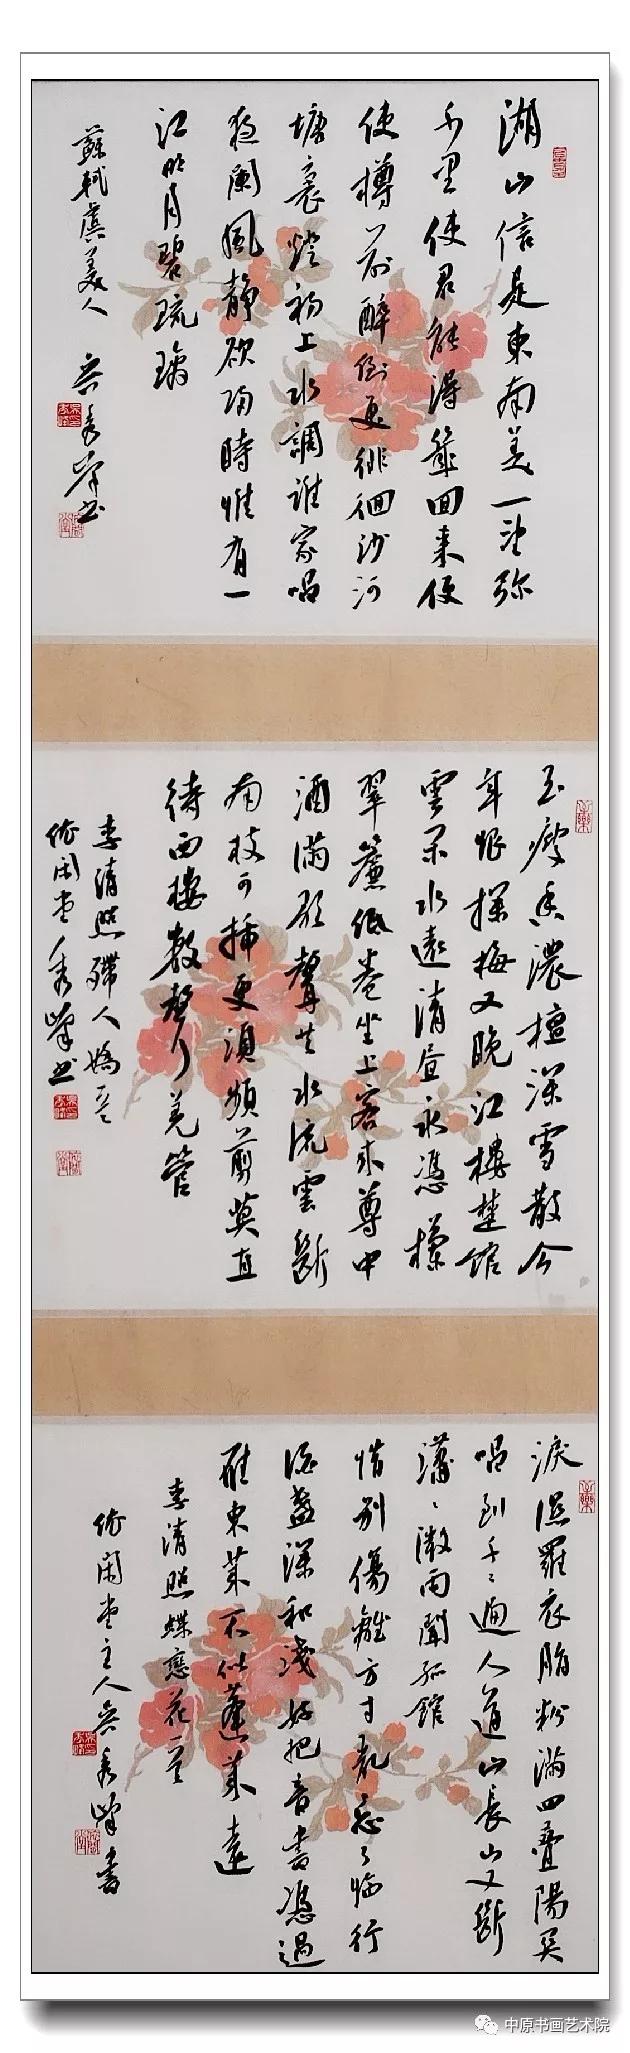 湖山信是東南美一望弥
千里使君能得幾回来便
使樽前醉倒更徘徊沙河
塘裏燈初上水調誰家唱
夜闌風静欲歸時惟有一
江明月碧琉璃
蘇軾虞美人 吴秀峰书
玉瘦香濃檀深雪散今
年恨探梅又晚江樓楚館
雲闲水遠清昼永憑欄
翠簾低卷坐上客来尊中
酒滿歌聲共水流雲斷
南枝可插更須頻剪莫直
待西樓數聲羌管
李清照殢人嬌一首
秀峰书
淚湿羅衣脂粉滿四疊陽关
唱到千々遍人道山長山又斷
瀟々微雨聞孤館
惜别傷離方寸亂忘了临行
酒盏深和淺好把音書憑過
雁東莱不似蓬莱遠
李清照蝶戀花一首
依闲堂主人吴秀峰書
中原书画艺术院